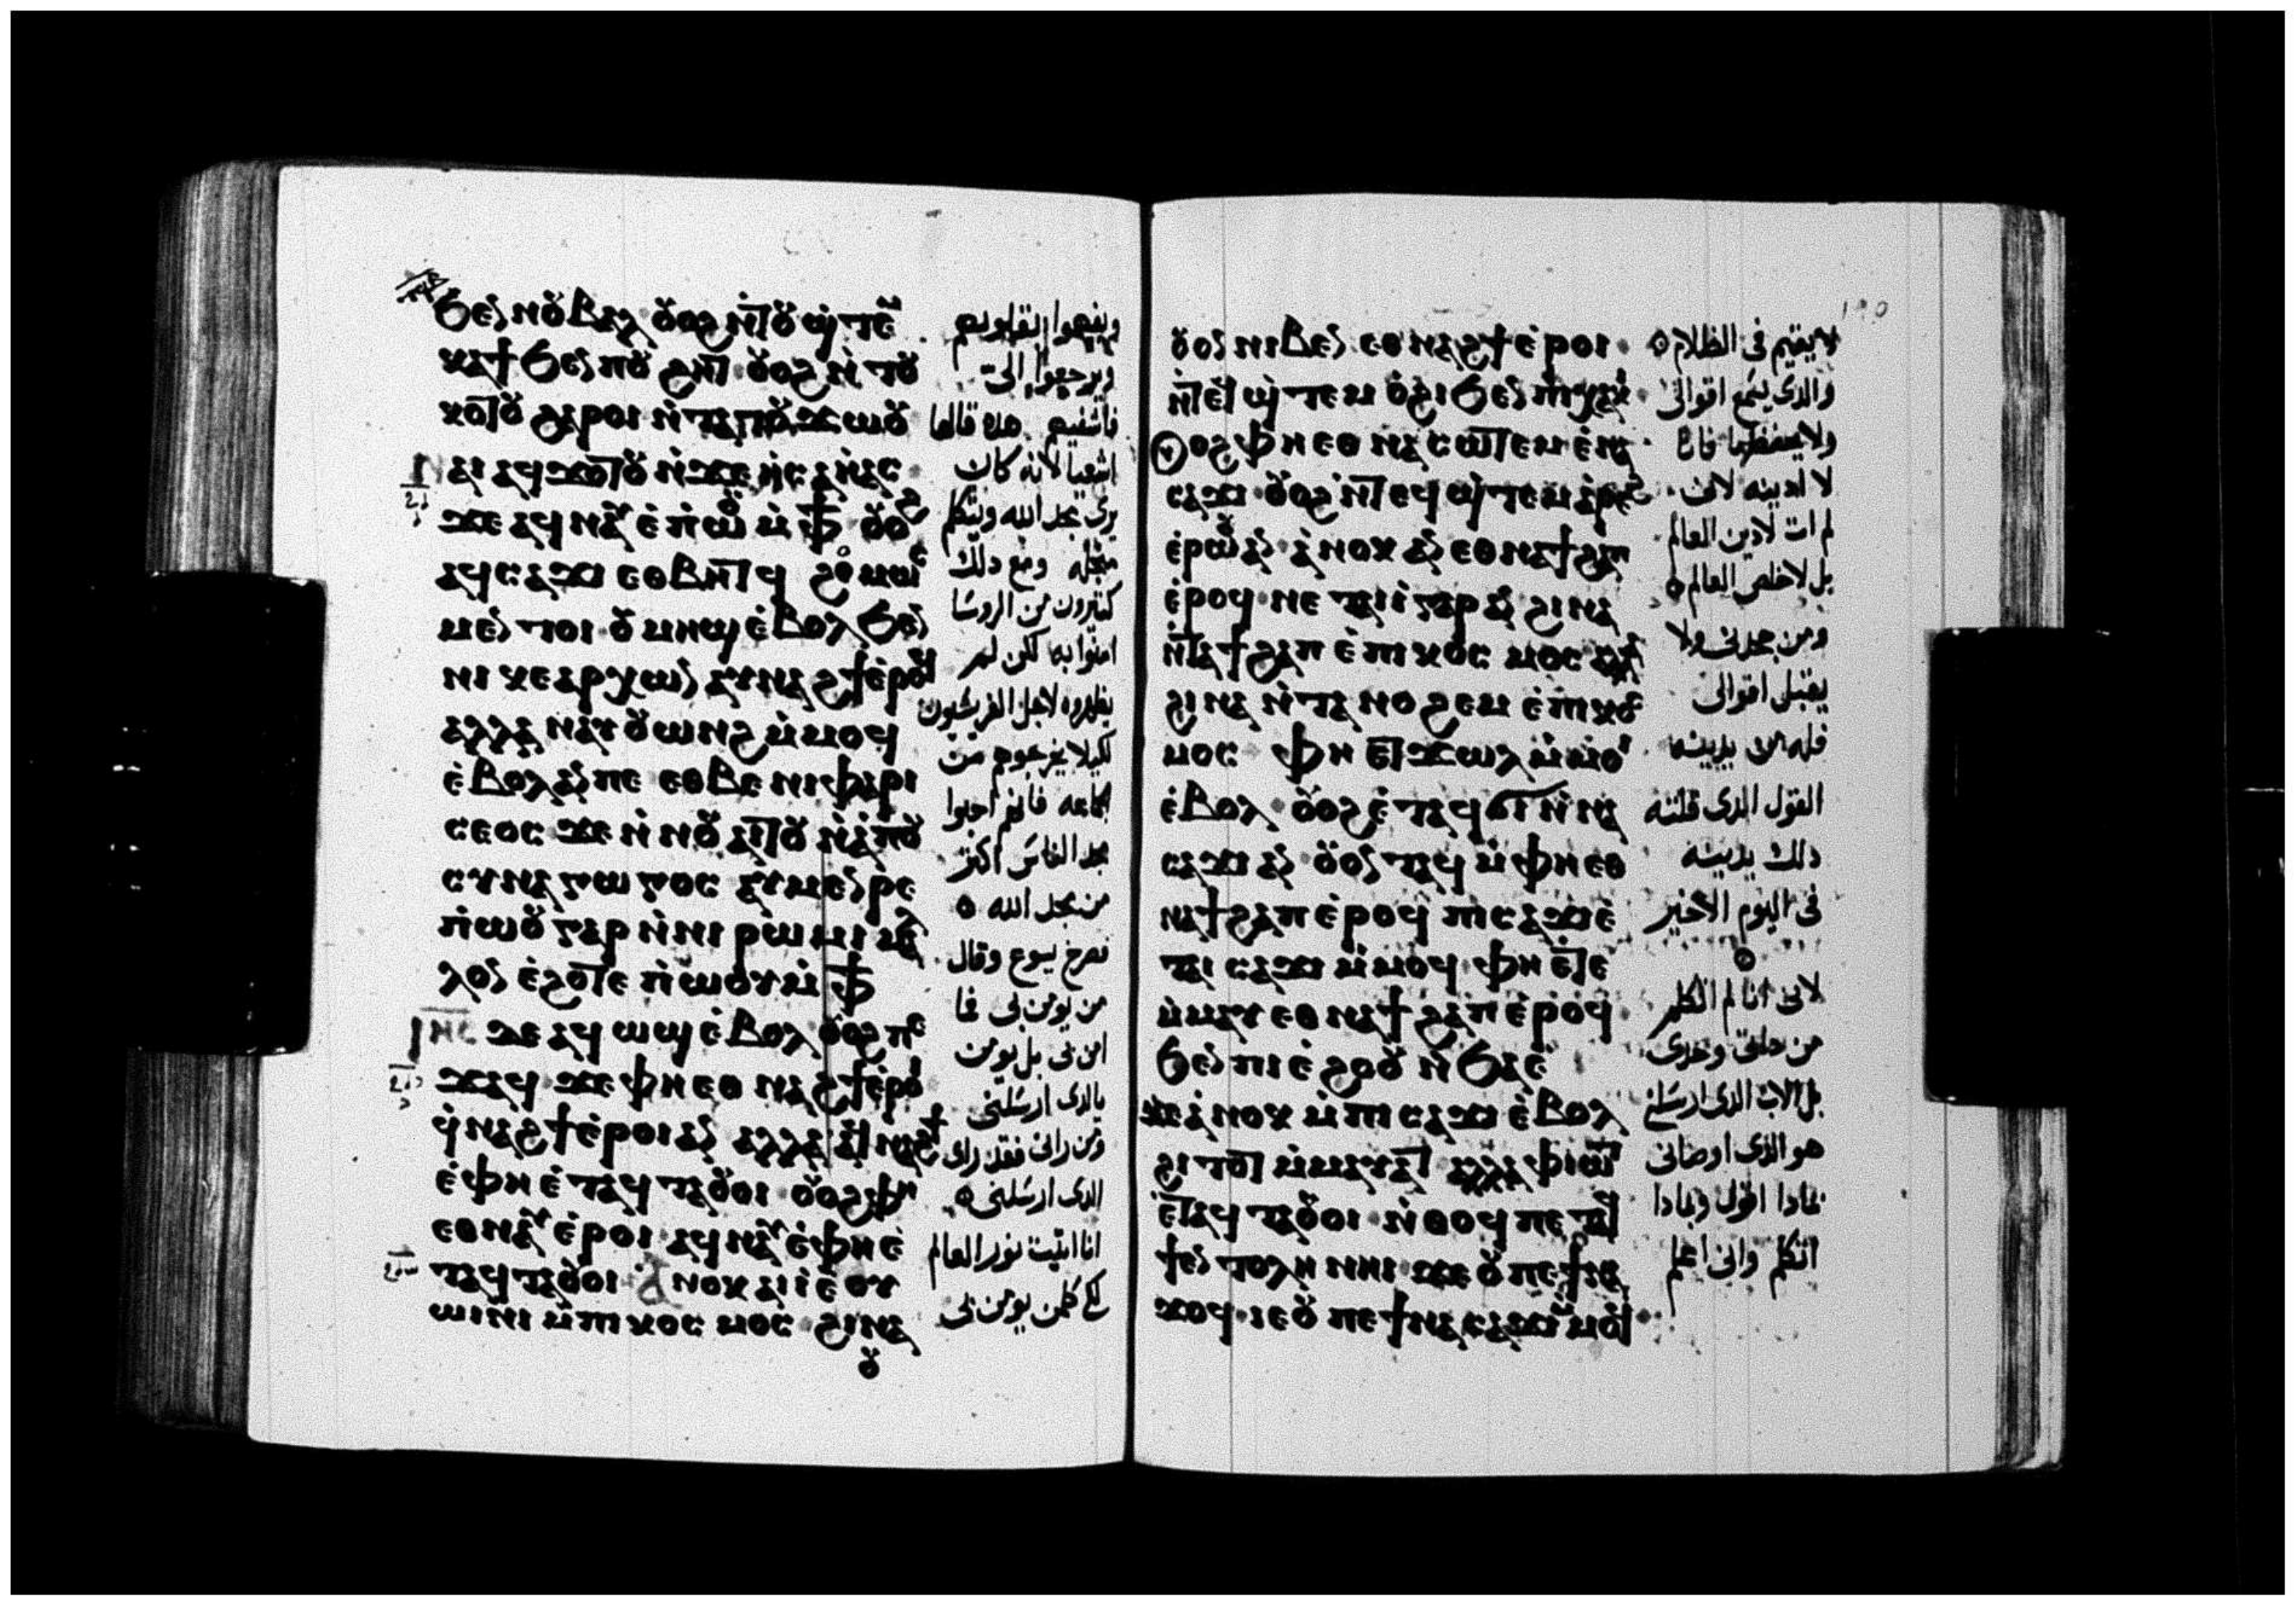 ϧⲉⲛ ⲛⲟⲩⲃⲁⲗ ⲟⲩⲟϩ ⲛ̀ⲧⲟⲩϣ̀ⲧⲉⲙ
ⲕⲁϯ ϧⲉⲛ ⲡⲟⲩϩⲏⲧ ⲟⲩⲟϩ ⲛ̀ⲧⲟⲩ
ⲕⲟⲧⲟⲩ ϩⲁⲣⲟⲓ ⲛ̀ⲧⲁⲧⲟⲩϫⲱⲟⲩ
ⲛⲁⲓ ⲁϥϫⲟⲧⲟⲩ ⲛ̀ϫⲉ ⲏ̀ⲥⲁⲏ̀ⲁⲥ
ϫⲉ ⲁϥⲛⲁⲩ ⲉ̀ⲡ̀ⲱⲟⲩ ⲙ̀ⲫϯ ⲟⲩⲟϩ
ⲁϥⲥⲁϫⲓ ⲉⲑⲃⲏⲧϥ ϩⲟⲙⲱⲥ
ⲙⲉⲛⲧⲟⲓ ⲟⲩⲙⲏϣ ⲉ̀ⲃⲟⲗ ϧⲉⲛ
ⲛⲓⲕⲉⲁⲣⲭⲱⲛ ⲁⲩⲛⲁϩϯ ⲉ̀ⲣⲟϥ
ⲁⲗⲗⲁ ⲛⲁⲩⲟⲩⲱⲛϩ ⲙ̀ⲙⲟϥ
ⲉ̀ⲃⲟⲗ ⲁⲛ ⲡⲉ ⲉⲑⲃⲉ ⲛⲓⲫⲁⲣⲓ
ⲥⲉⲟⲥ ϫⲉ ⲛ̀ⲛⲟⲩⲁⲓⲧⲟⲩ ⲛ̀ⲁ̀ⲡⲟ
ⲥⲩⲛⲁⲅⲱⲅⲟⲥ ⲁⲩⲙⲉⲛⲣⲉ
ⲡ̀ⲱⲟⲩ ⲅⲁⲣ ⲛ̀ⲛⲓⲣⲱⲙⲓ ⲙⲁⲗ
ⲗⲟⲛ ⲉ̀ϩⲟⲧⲉ ⲡ̀ⲱⲟⲩ ⲙ̀ⲫϯ
ⲓⲏⲥ ϫⲉ ⲁϥⲱϣ ⲉ̀ⲃⲟⲗ ⲟⲩⲟϩ ⲡⲉ
ϫⲁϥ ϫⲉ ⲫⲏ ⲉⲑⲛⲁϩϯ ⲉ̀ⲣⲟⲓ
ϥ̀ⲛⲁϩϯ ⲉ̀ⲣⲟⲓ ⲁⲛ ⲁⲗⲗⲁ ⲁϥⲛⲁϩϯ
ⲉ̀ⲫⲏ ⲉ̀ⲧⲁϥⲧⲁⲟⲩⲟⲓ ⲟⲩⲟϩ ⲫⲏ
ⲉⲑⲛⲁⲩ ⲉ̀ⲣⲟⲓ ⲁϥⲛⲁⲩ ⲉ̀ⲫⲏ ⲉ̀
ⲧⲁϥⲧⲁⲟⲩⲟⲓ ⲁⲛⲟⲕ ⲁⲓⲓ̀ ⲉⲩⲟⲩ
ⲱⲓⲛⲓ ⲙ̀ⲡⲓⲕⲟⲥⲙⲟⲥ ϩⲓⲛⲁ
ⲟⲩ
ويفهموا بقلوبهم
ويرجعوا الى
فاشفيهم هذه قالها
اشعيا لانه كان
يرى مجد الله ويتكلم
من اجله ومع دلك
كتيرون من الروسا
امنوا به لكن لم
يظهروه لاجل الفريسيون
لكيلا يخرجوهم من
الجماعه فانهم احبوا
مجد الناس اكثر
من مجد الله
فصرخ يسوع وقال
من يومن بى فما
امن بى بل يومن
بالدى ارسلنى
ومن رانى فقد راى
الدى ارسلنى
انا اتيت نور العالم
لكى كلمن يومن بى
١٩٥
ⲟⲩⲟⲛ ⲛⲓⲃⲉⲛ ⲉⲑⲛⲁϩϯ ⲉ̀ⲣⲟⲓ
ⲛ̀ⲧⲉϥϣ̀ⲧⲉⲙⲟϩⲓ ϧⲉⲛ ⲡⲓⲭⲁⲕⲓ
ⲟⲩⲟϩ ⲫⲏ ⲉⲑⲛⲁⲥⲱⲧⲉⲙ ⲉ̀ⲛⲁ
ⲥⲁϫⲓ ⲟⲩⲟϩ ⲛ̀ⲧⲉϥϣ̀ⲧⲉⲙⲁ̀ⲣⲉϩ
ⲉ̀ⲣⲱⲟⲩ ⲁⲛ ⲁ̀ⲛⲟⲕ ⲁⲛ ⲉⲑⲛⲁϯϩⲁⲡ
ⲉ̀ⲣⲟϥ ⲛⲉ ⲧⲁⲓⲓ̀ ⲅⲁⲣ ⲁⲛ ϩⲓⲛⲁ
ⲛ̀ⲧⲁϯϩⲁⲡ ⲉ̀ⲡⲓⲕⲟⲥⲙⲟⲥ ⲁⲗⲗⲁ
ϩⲓⲛⲁ ⲛ̀ⲧⲁⲛⲟϩⲉⲙ ⲉ̀ⲡⲓⲕⲟⲥ
ⲙⲟⲥ ⲫⲏ ⲉⲧϫⲱⲗ ⲙ̀ⲙⲟⲓ
ⲉ̀ⲃⲟⲗ ⲟⲩⲟϩ ⲉ̀ⲧⲁϥϭⲓ ⲛ̀ⲛⲁ
ⲥⲁϫⲓ ⲁⲛ ⲟⲩⲟⲛⲧⲁϥ ⲙ̀ⲫⲏ ⲉⲑ
ⲛⲁϯϩⲁⲡ ⲉ̀ⲣⲟϥ ⲡⲓⲥⲁϫⲓ ⲉ̀
ⲧⲁⲓⲥⲁϫⲓ ⲙ̀ⲙⲟϥ ⲫⲏ ⲉ̀ⲧⲉ
ⲙ̀ⲙⲁⲩ ⲉⲑⲛⲁϯϩⲁⲡ ⲉ̀ⲣⲟϥ
ϧⲉⲛ ⲡⲓⲉ̀ϩⲟⲟⲩ ⲛ̀ϧⲁⲉ̀
ϫⲉ ⲁ̀ⲛⲟⲕ ⲙ̀ⲡⲓⲥⲁϫⲓ ⲉ̀ⲃⲟⲗ
ϩⲓⲧⲟⲧ ⲙ̀ⲙⲁⲩⲁⲧ ⲁⲗⲗⲁ ⲫⲓⲱⲧ
ⲉ̀ⲧⲁϥⲧⲁⲟⲩⲟⲓ ⲛ̀ⲑⲟϥ ⲡⲉⲧⲁϥ
ϯⲉⲛⲧⲟⲗⲏ ⲛⲏⲓ ϫⲉ ⲟⲩ ⲡⲉϯⲛⲁ
ϫⲟϥ ⲓⲉ ⲟⲩ ⲡⲉϯⲛⲁⲥⲁϫⲓ ⲙ̀ⲙⲟϥ
لا يقيم فى الظلام
والدى يسمع اقوالى
ولا يحفظها فانا
لا ادينه لانى
لم ات لادين العالم
بل لاخلص العالم
ومن جحدنى ولا
يقبل اقوالى
فله من يدينه
القول الدى قلته
دلك يدينه
فى اليوم الاخير
لانى انا لم اتكلم
من داتى وحدى
بل الاب الدى ارسلنى
هو الدى اوصانى
بمادا اقول وبمادا
اتكلم وانى اعلم